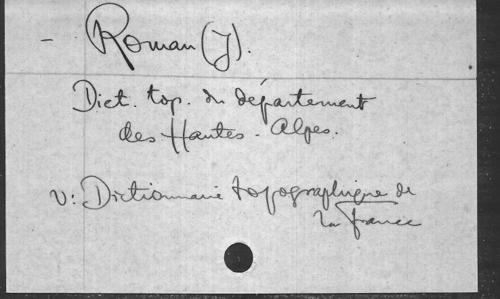 - Roman (J).
Dict. top. du département
des Hautes-Alpes.
v: Dictionnaire topographique de
la France